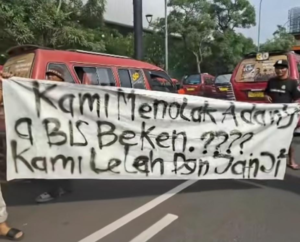 Kami Menolak Adanj
a BIS BeKen.????
Kami Lelah Dgn JanJi